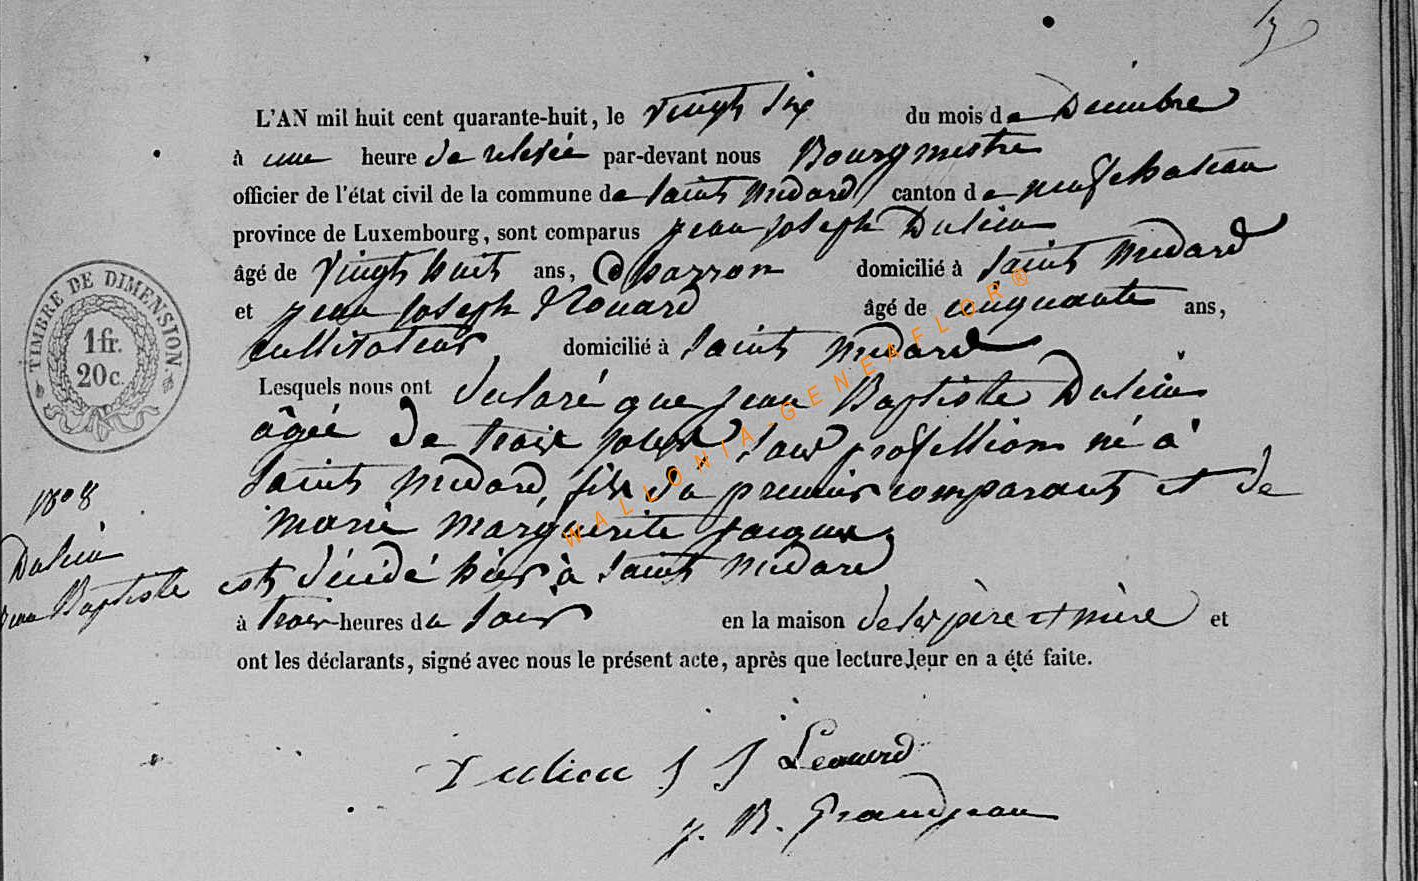 3
L'AN mil huit cent quarante-huit, le vingt six du mois de Décembre
à une heure de relevée par-devant nous Bourgmestre
officier de l'état civil de la commune de Saint Médard canton de neufchateau
province de Luxembourg, sont comparus jean joseph Dulieu
âgé de vingt huit ans, domicilié à Saint Médard
et jean joseph âgé de cinquante ans,
cultivateur domicilié à Saint Médard
Lesquels nous ont declaré que jean Baptiste Dulieu
âgée de trois jours, sans profession né à
Saint Médard, fils du premier comparant et de
marie marguerite jacques
est décédé hier à Saint Médard
à trois heures du soir en la maison de ses père et mère et
ont les déclarants, signé avec nous le présent acte, après que lecture leur en a été faite.
TIMBRE DE DIMENSION.
1 fr.
20 c.
Dulieu
jean Baptiste
WALLONIA-GENEAFLOR®
Dulieu J J Leonard
j. B. Grandjean